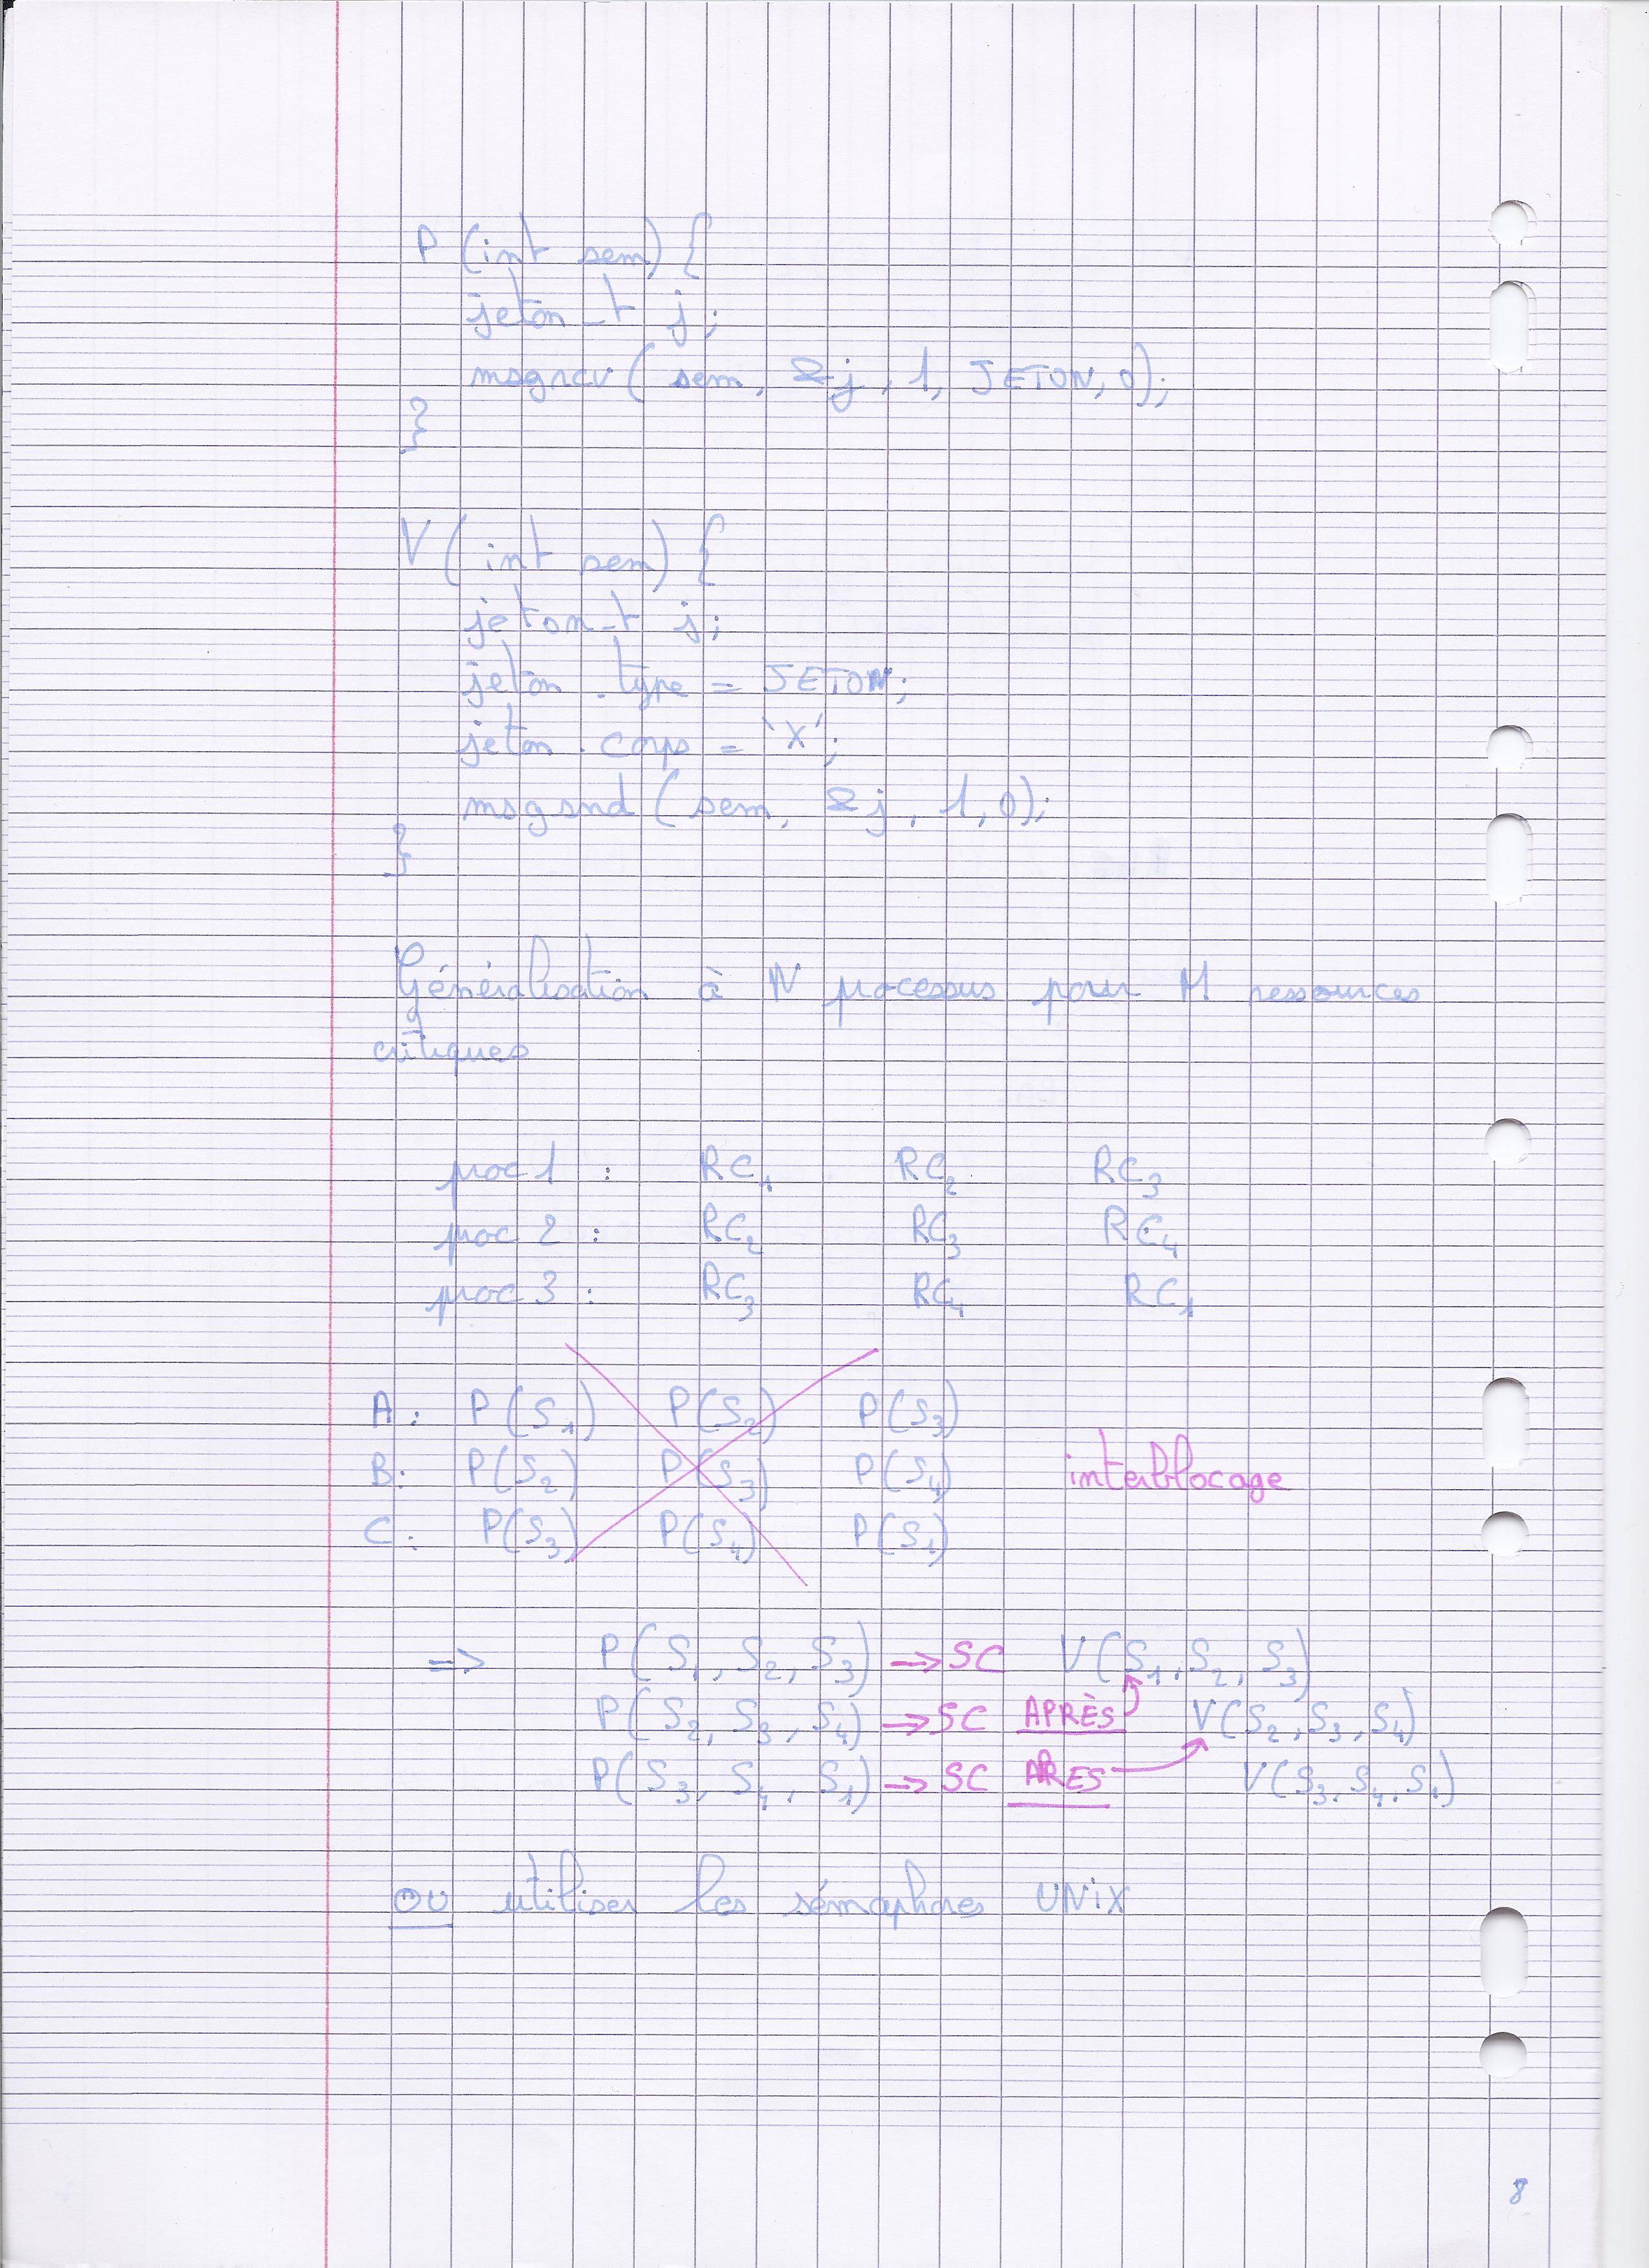 P (int sem) {
jeton_t j;
msgrcv( sem, &j, 1, JETON, 0);
}
V (int sem) {
jeton_t j;
jeton.type = JETON;
jeton.corps = 'X';
msgsnd (sem, &j, 1, 0);
}
Généralisation à N processus pour M ressources
critiques
proc 1 : RC1 RC2 RC3
proc 2 : RC2 RC3 RC4
proc 3 : RC3 RC4 RC1
A: P(S1) P(S2) P(S3)
B: P(S2) P(S3) P(S4) interblocage
C: P(S3) P(S4) P(S1)
=> P(S1, S2, S3) → SC V(S1, S2, S3)
P(S2, S3, S4) → SC APRÈS V(S2, S3, S4)
P(S3, S4, S1) → SC APRES V(S3, S4, S1)
OU utiliser les sémaphores UNiX
8